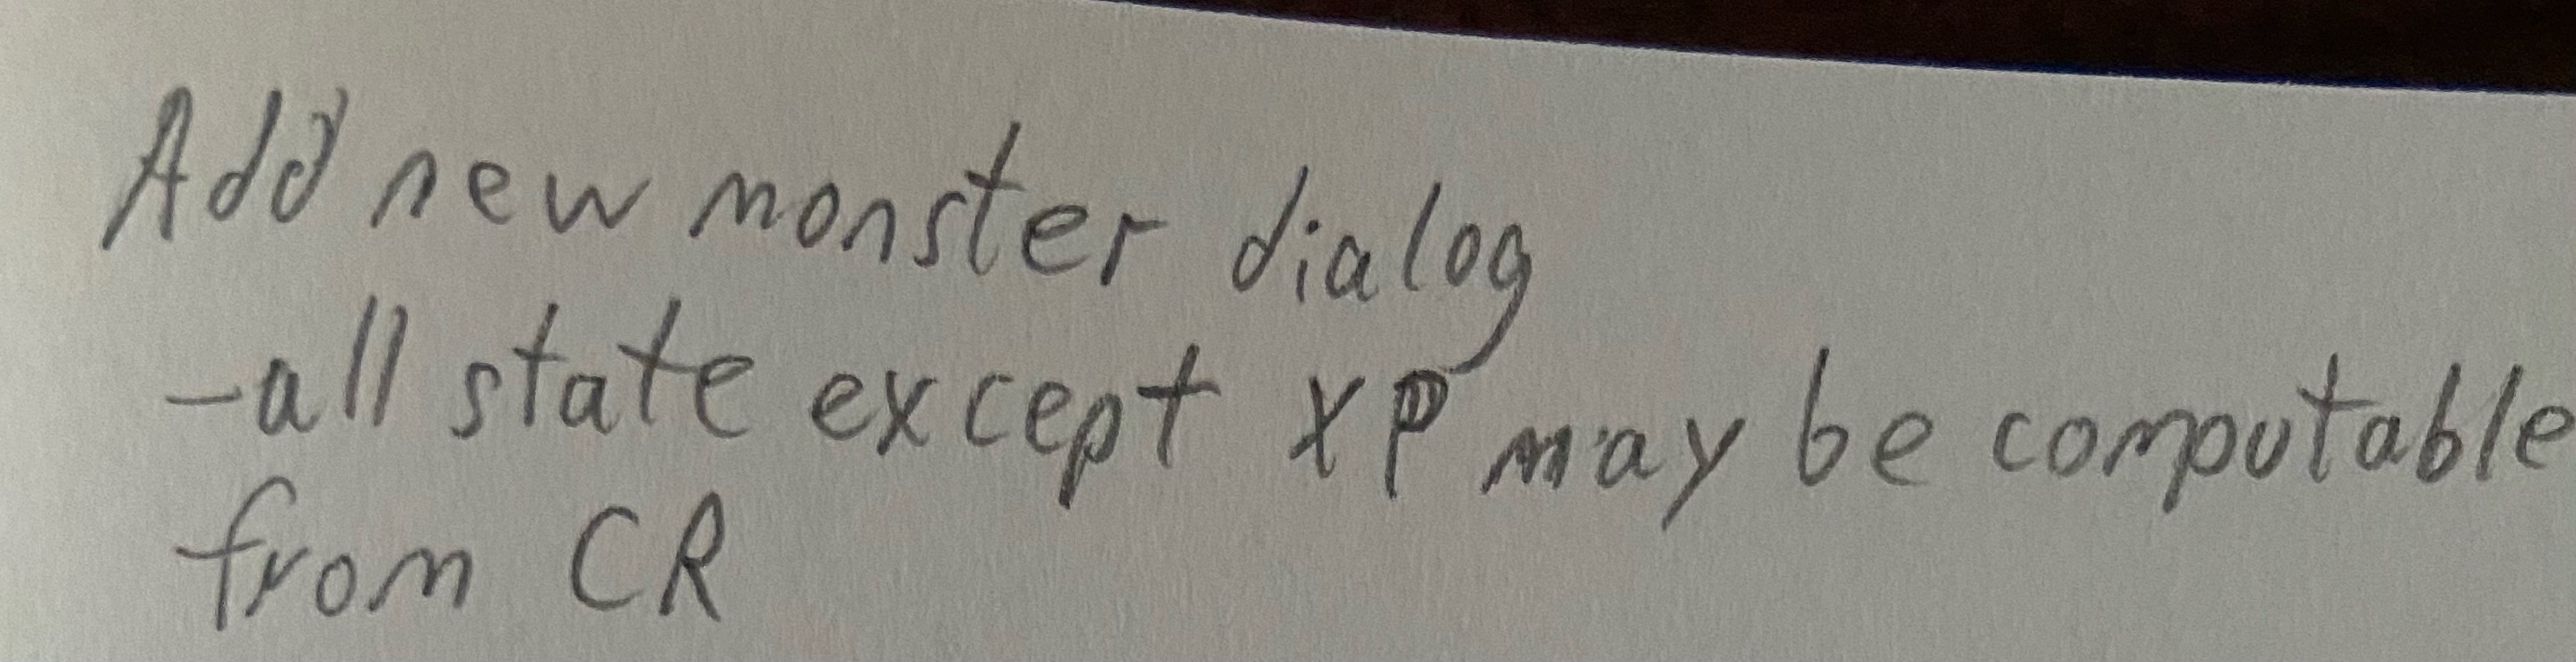 Add new monster dialog
-all state except XP may be computable
from CR